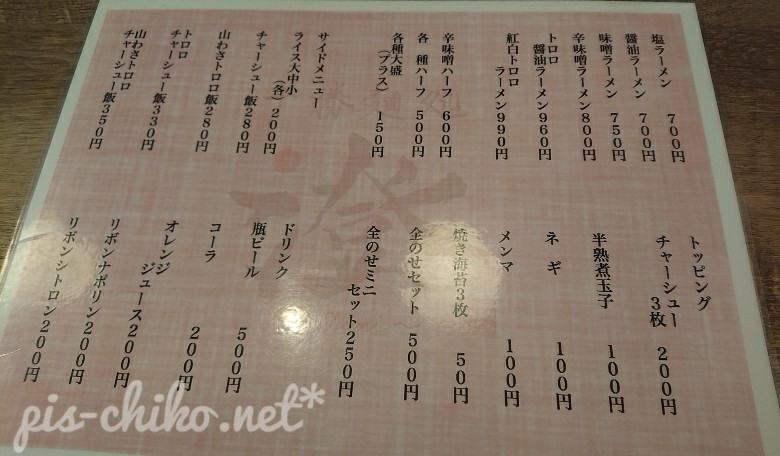 塩ラーメン 700円
醤油ラーメン 700円
味噌ラーメン 750円
辛味噌ラーメン800円
トロロ
醤油ラーメン960円
紅白トロロ
ラーメン990円
辛味噌ハーフ 600円
各 種 ハーフ 500円
各種大盛
(プラス) 150円
サイドメニュー
ライス大中小
(各) 200円
チャーシュー飯280円
山わさトロロ飯280円
トロロ
チャーシュー飯330円
山わさトロロ
チャーシュー飯350円
トッピング
チャーシュー
3枚 200円
半熟煮玉子 100円
ネ ギ 100円
メンマ 100円
焼き海苔3枚 50円
全のせセット 500円
全のせミニ
セット250円
ドリンク
瓶ビール 500円
コーラ 200円
オレンジ
ジュース200円
リボンナポリン200円
リボンシトロン200円
pis-chiko.net*